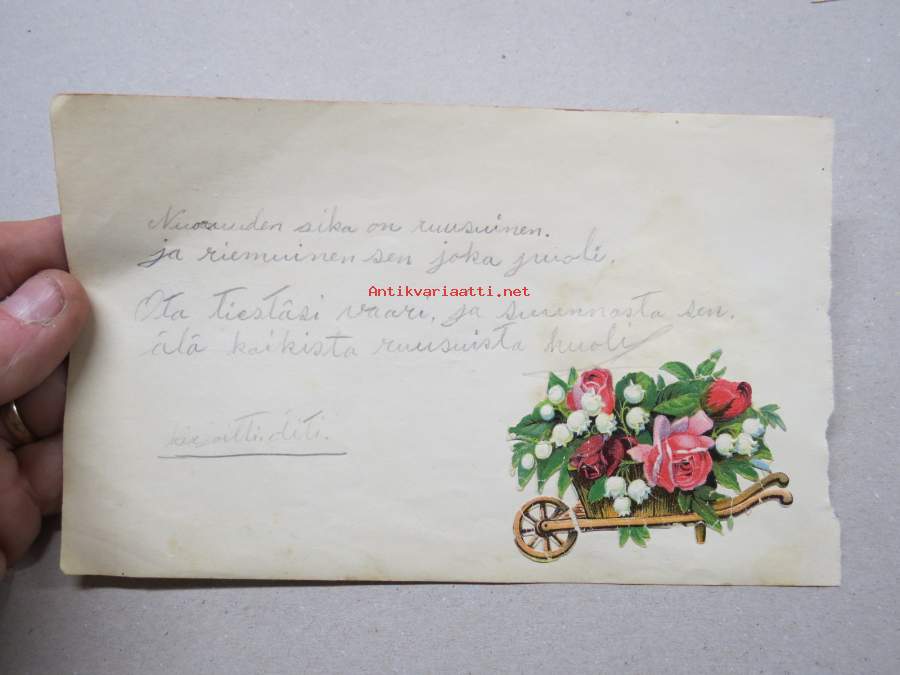 Nuoruuden aika on ruusuinen.
ja riemuinen sen joka puoli.
Antikvariaatti.net
Ota tiestäsi vaari, ja suunnasta sen.
älä kaikista ruusuista huoli
kirjotti. äiti.